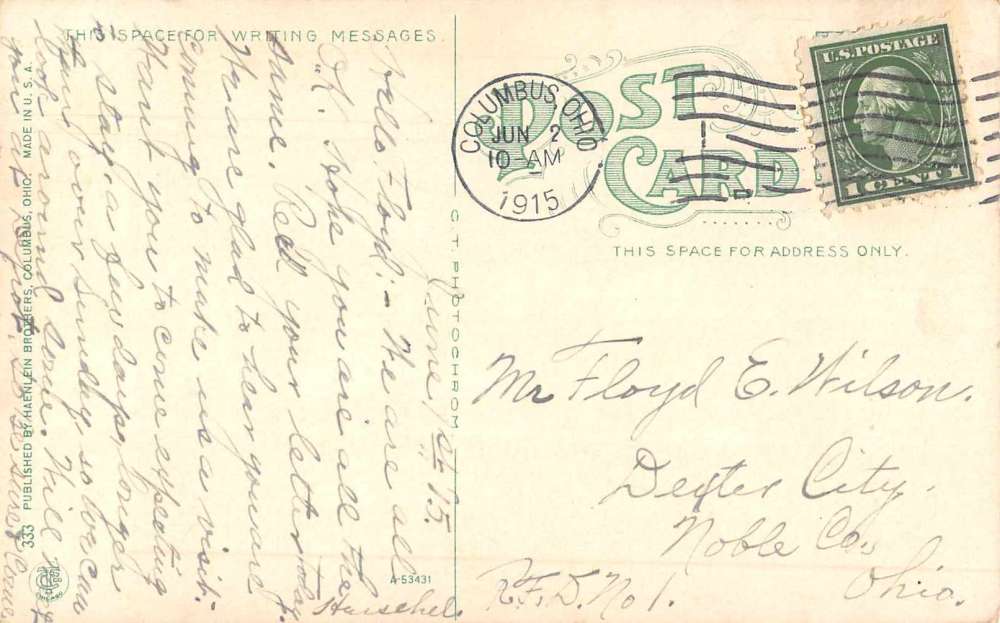 THIS SPACE FOR WRITING MESSAGES.
POST CARD
THIS SPACE FOR ADDRESS ONLY.
COLUMBUS, OHIO
JUN 2
10-AM
1915
U.S. POSTAGE
1 CENT 1
June 1st 15.
Hello Floyd:- We are all
O.K. Hope you are all the
same. Rec'd your letter today.
We are glad to hear you are
coming to make us a visit.
Want you to come expecting
to stay a few days longer
than over Sunday, so we can
look around some. Will
you as to be sure & come
Herschel.
Mr Floyd E. Wilson.
Dexter City.
Noble Co.,
Ohio.
R.F.D. No 1.
C.T. PHOTOCHROM
A-53431
333 PUBLISHED BY HAENLEIN BROTHERS, COLUMBUS, OHIO. MADE IN U.S.A.
CHICAGO